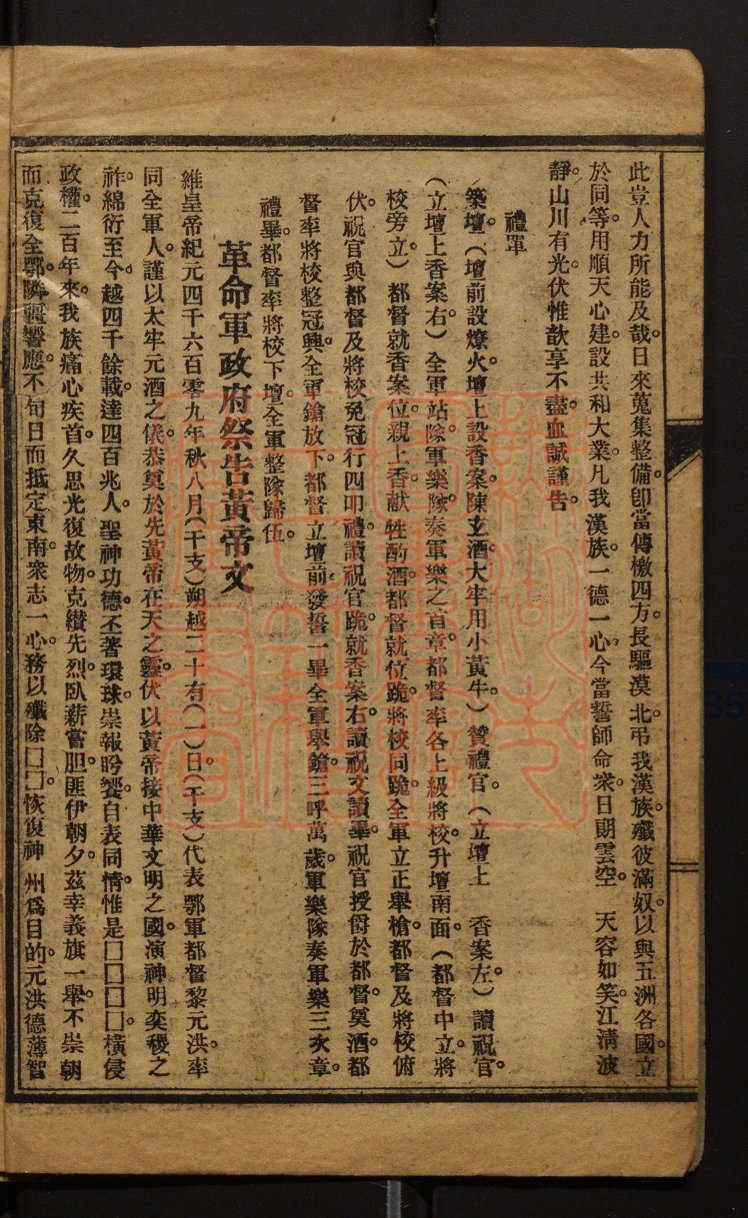 此豈人力所能及哉。日來蒐集整備。卽當傳檄四方。長驅漠北。弔我漢族。殲彼滿奴。以與五洲各國。立
於同等。用順天心。建設共和大業。凡我漢族。一德一心。今當誓師命衆。日朗雲空。天容如笑。江淸波
靜。山川有光。伏惟歆享不盡。血誠謹告。
禮單
築壇。（壇前設燎火。壇上設香案。陳玄酒。大牢用小黃牛。）贊禮官。（立壇上香案左。）讀祝官。
（立壇上香案右。）全軍站隊。軍樂隊奏軍樂之首章。都督率各上級將校。升壇南面。（都督中立。將
校旁立。）都督就香案位。親上香。献牲酌酒。都督就位跪。將校同跪。全軍立正舉槍。都督及將校俯
伏。祝官與都督及將校。免冠行四叩禮。讀祝官跪。就香案右。讀祝文。讀畢。祝官授爵於都督。奠酒。都
督率將校整冠興。全軍鎗放下。都督立壇前。發誓一畢。全軍舉鎗。三呼萬歲。軍樂隊奏軍樂三次章。
禮畢。都督率將校下壇。全軍整隊歸伍。
革命軍政府祭告黃帝文
維皇帝紀元四千六百零九年秋八月（干支）朔越二十有（一）日（干支）代表鄂軍都督黎元洪。率
同全軍人。謹以太牢元酒之儀。恭奠於先黃帝在天之靈。伏以黃帝接中華文明之國。演神明奕稷之
祚。綿衍至今。越四千餘載。達四百兆人。聖神功德。丕著環球。崇報肹蠁。自表同情。惟是□□□□橫侵
政權。二百年來。我族痛心疾首。久思光復故物。克纘先烈。臥薪嘗胆。匪伊朝夕。茲幸義旗一舉。不崇朝
而克復全鄂。隣疆響應。不旬日而抵定東南。衆志一心。務以殲除□□。恢復神州爲目的。元洪德薄智